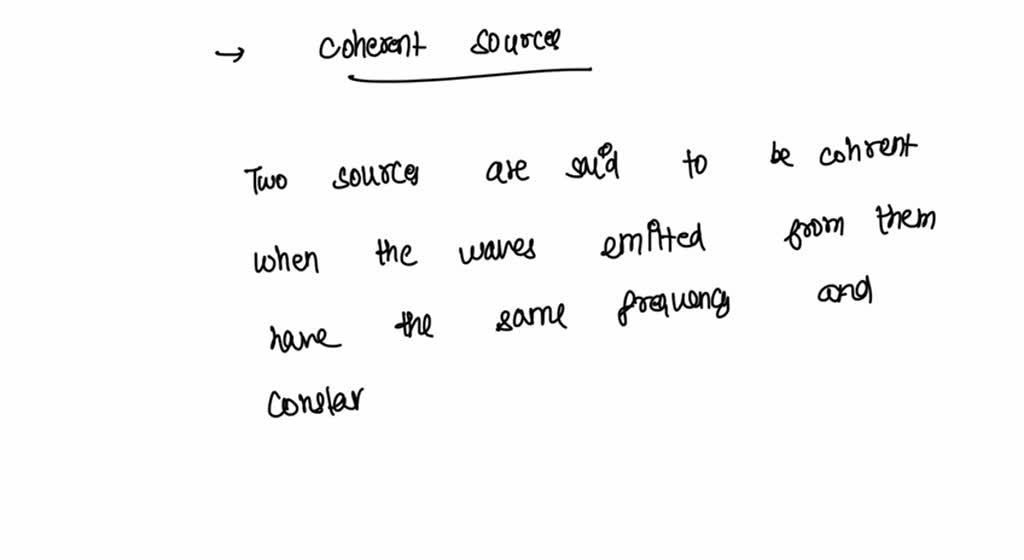 → Coherent sources
Two sources are said to be cohrent
when the waves emitted from them
have the same frequency and
constar